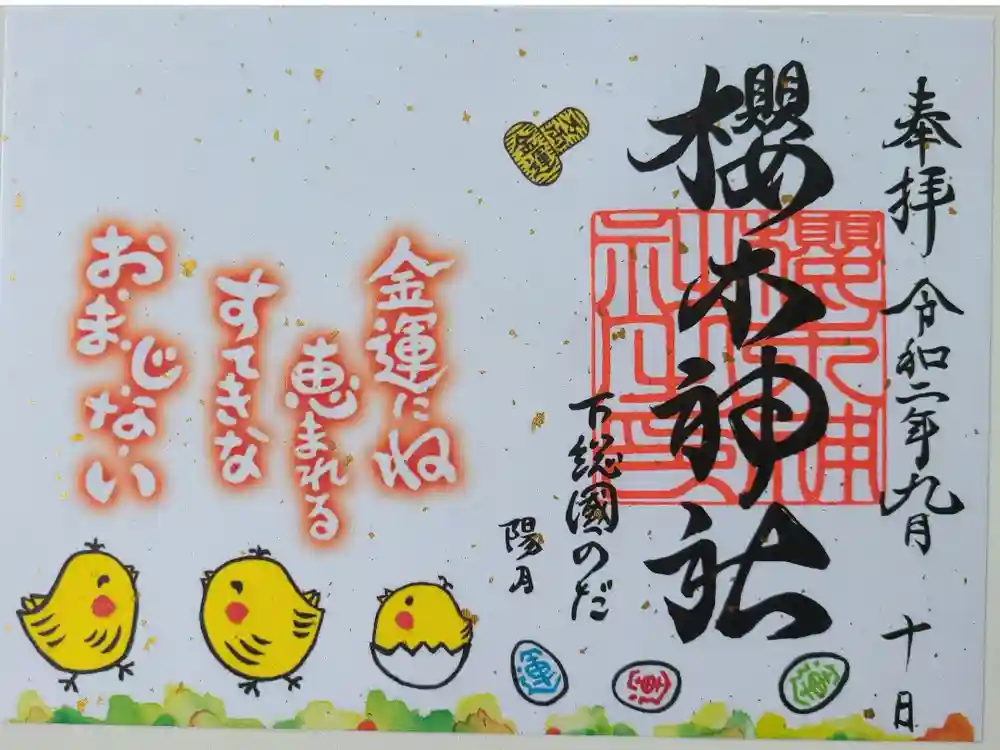 奉拝 令和二年九月 十日
櫻木神社
下総國のだ
陽月
金運
金運にね
恵まれる
すてきな
おまじない